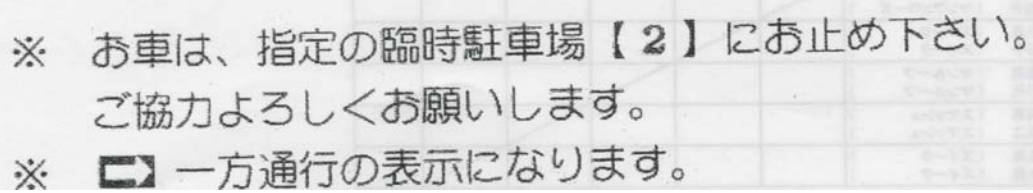 ※ お車は、指定の臨時駐車場【2】にお止め下さい。
ご協力よろしくお願いします。
※ ➡ 一方通行の表示になります。